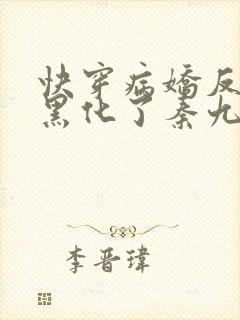 快穿病嬌反
黑化了秦九
李晋瑋